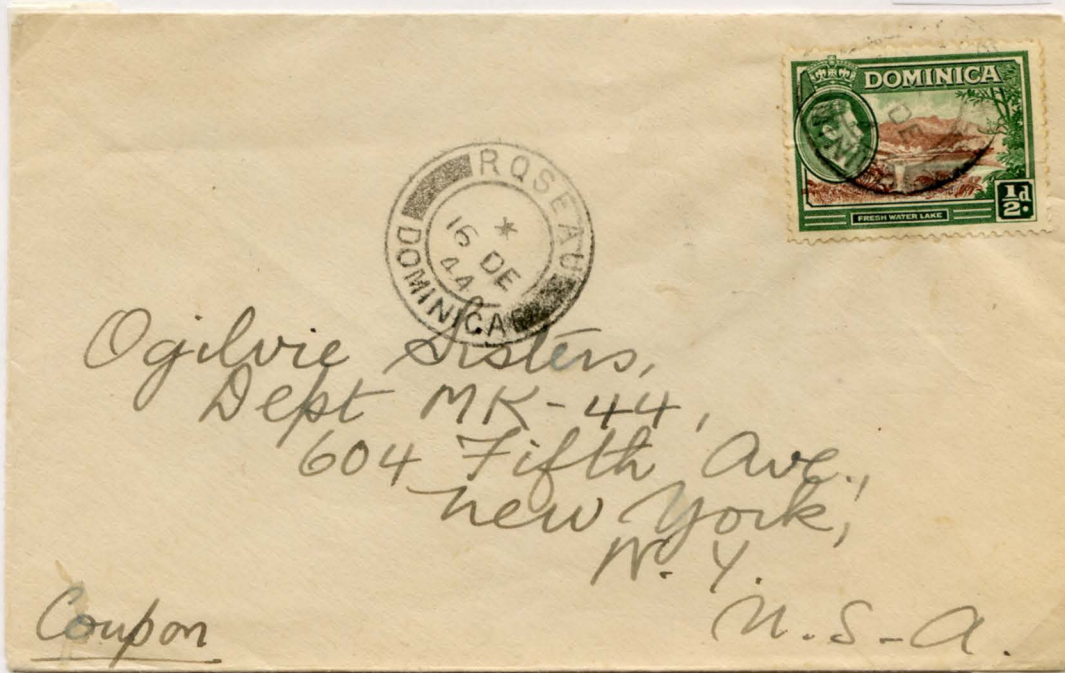 DOMINICA
½d.
FRESH WATER LAKE
ROSEAU
*
16 DE
44
DOMINICA
Ogilvie Sisters,
Dept MK-44,
604 Fifth Ave.,
New York,
N.Y.
U.S-A.
Coupon